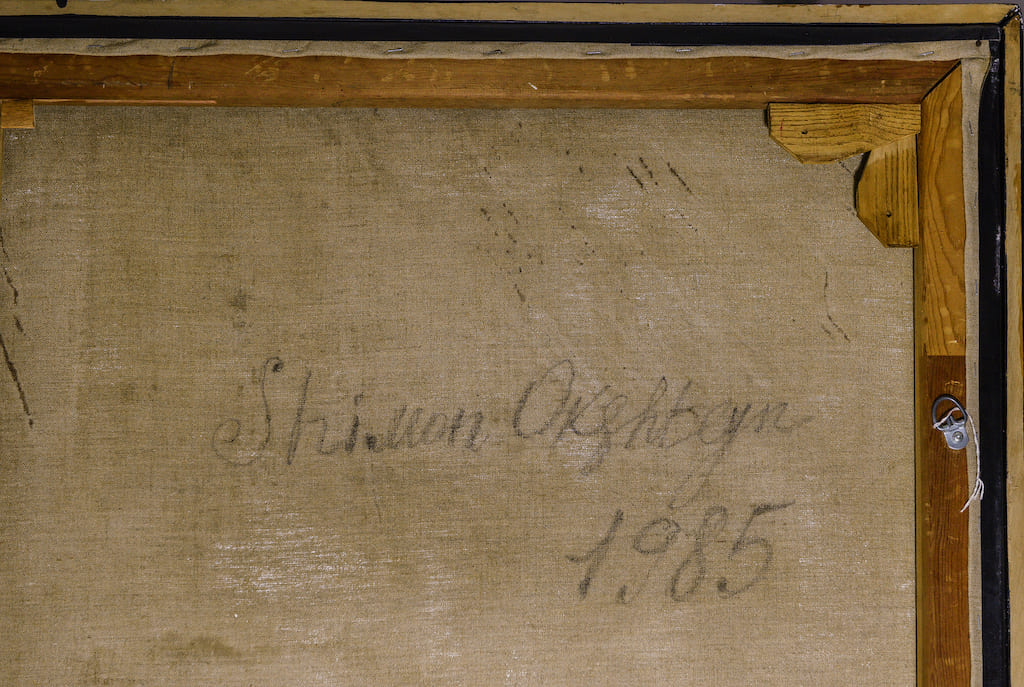 Shimon Okshteyn
1985